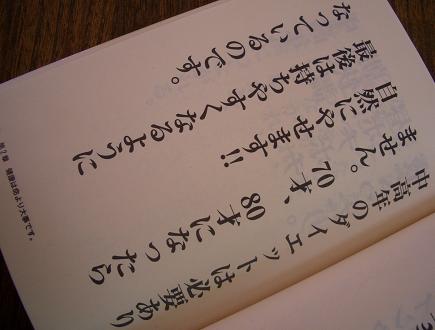 中高年のダイエットは必要あり
ません。70才、80才になったら
自然にやせます!!
最後は持ちやすくなるように
なっているのです。
第7章 健康は命より大事です。